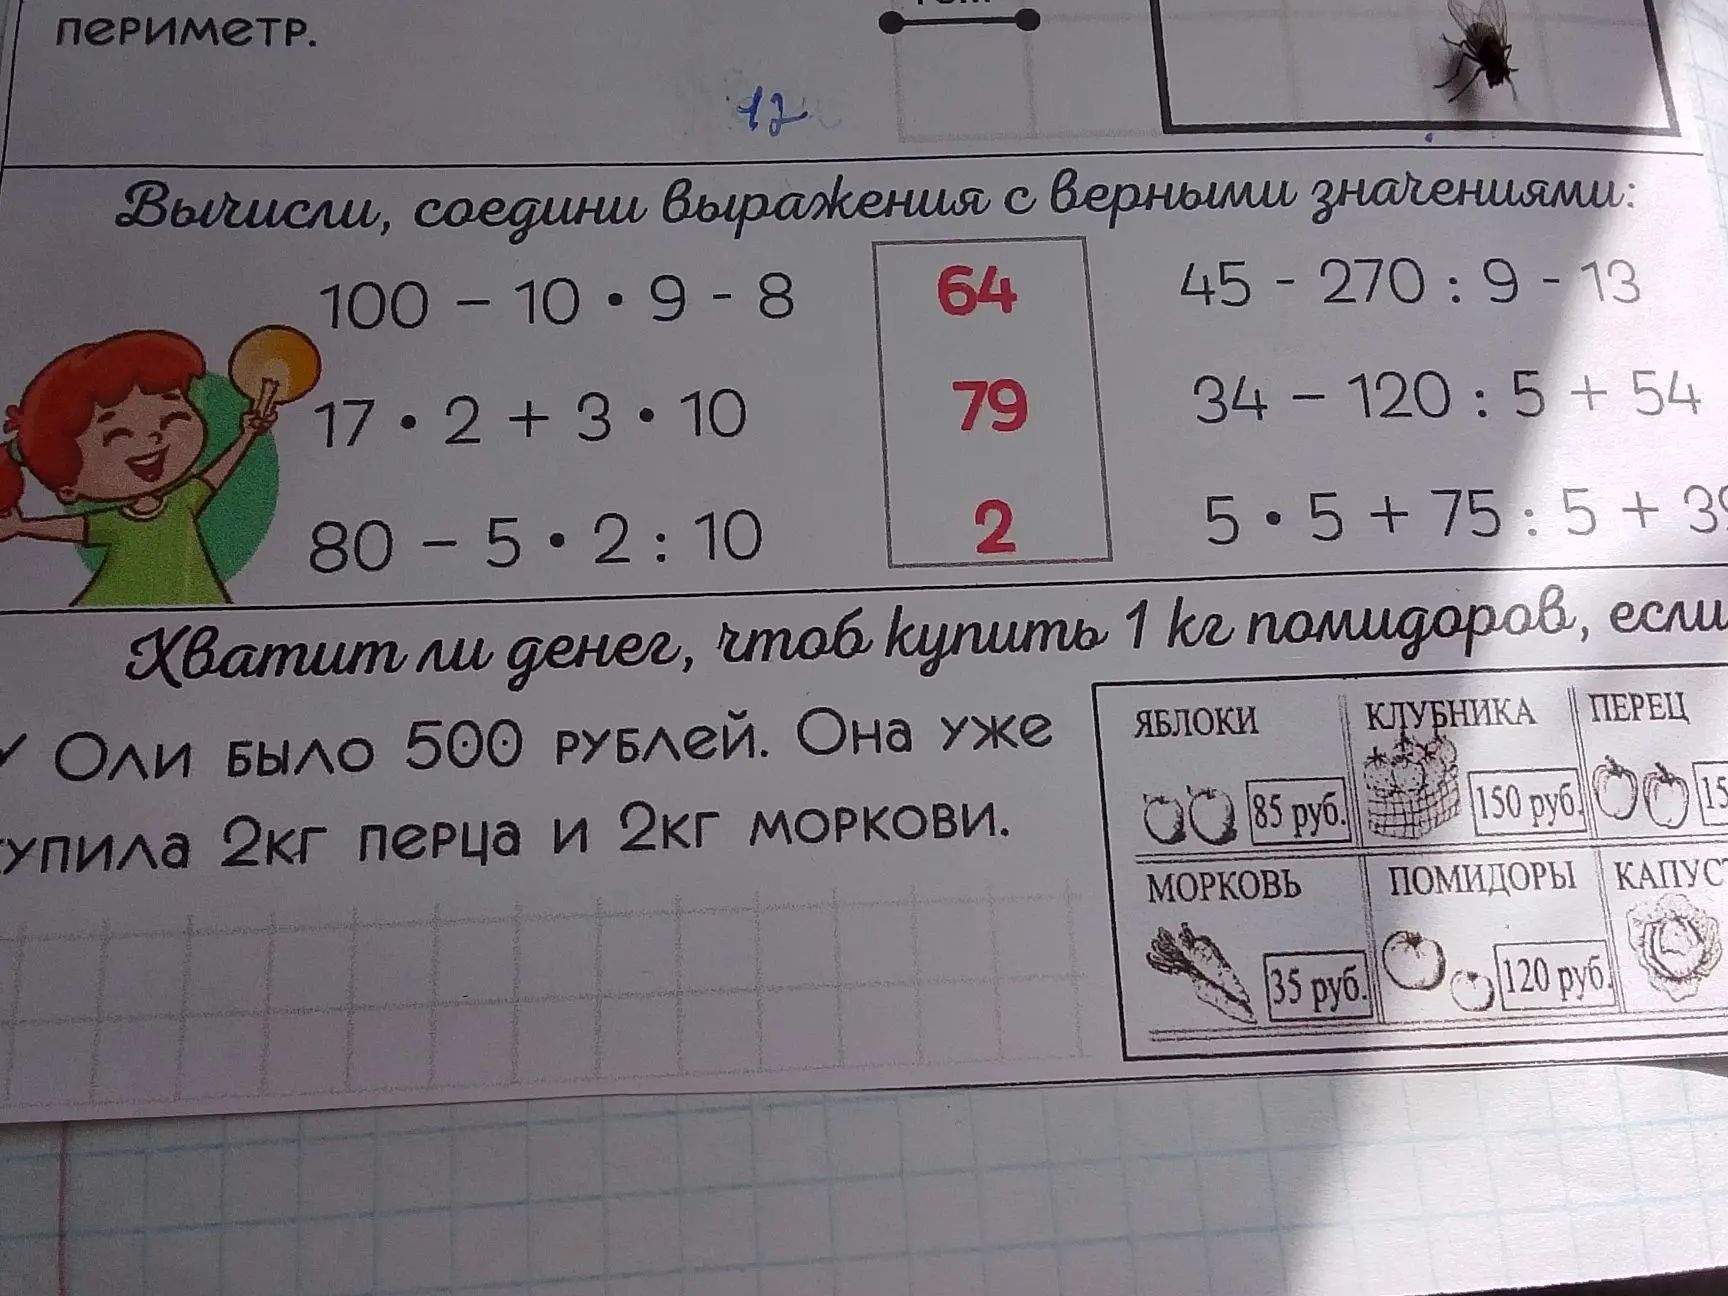 периметр.
12
Вычисли, соедини выражения с верными значениями:
100 – 10 • 9 - 8
64
45 - 270 : 9 - 13
17 • 2 + 3 • 10
79
34 – 120 : 5 + 54
80 – 5 • 2 : 10
2
5 • 5 + 75 : 5 + 39
Хватит ли денег, чтоб купить 1 кг помидоров, если
Оли было 500 рублей. Она уже
упила 2кг перца и 2кг моркови.
ЯБЛОКИ
КЛУБНИКА
ПЕРЕЦ
85 руб.
150 руб.
15
МОРКОВЬ
ПОМИДОРЫ
КАПУСТ
35 руб.
120 руб.